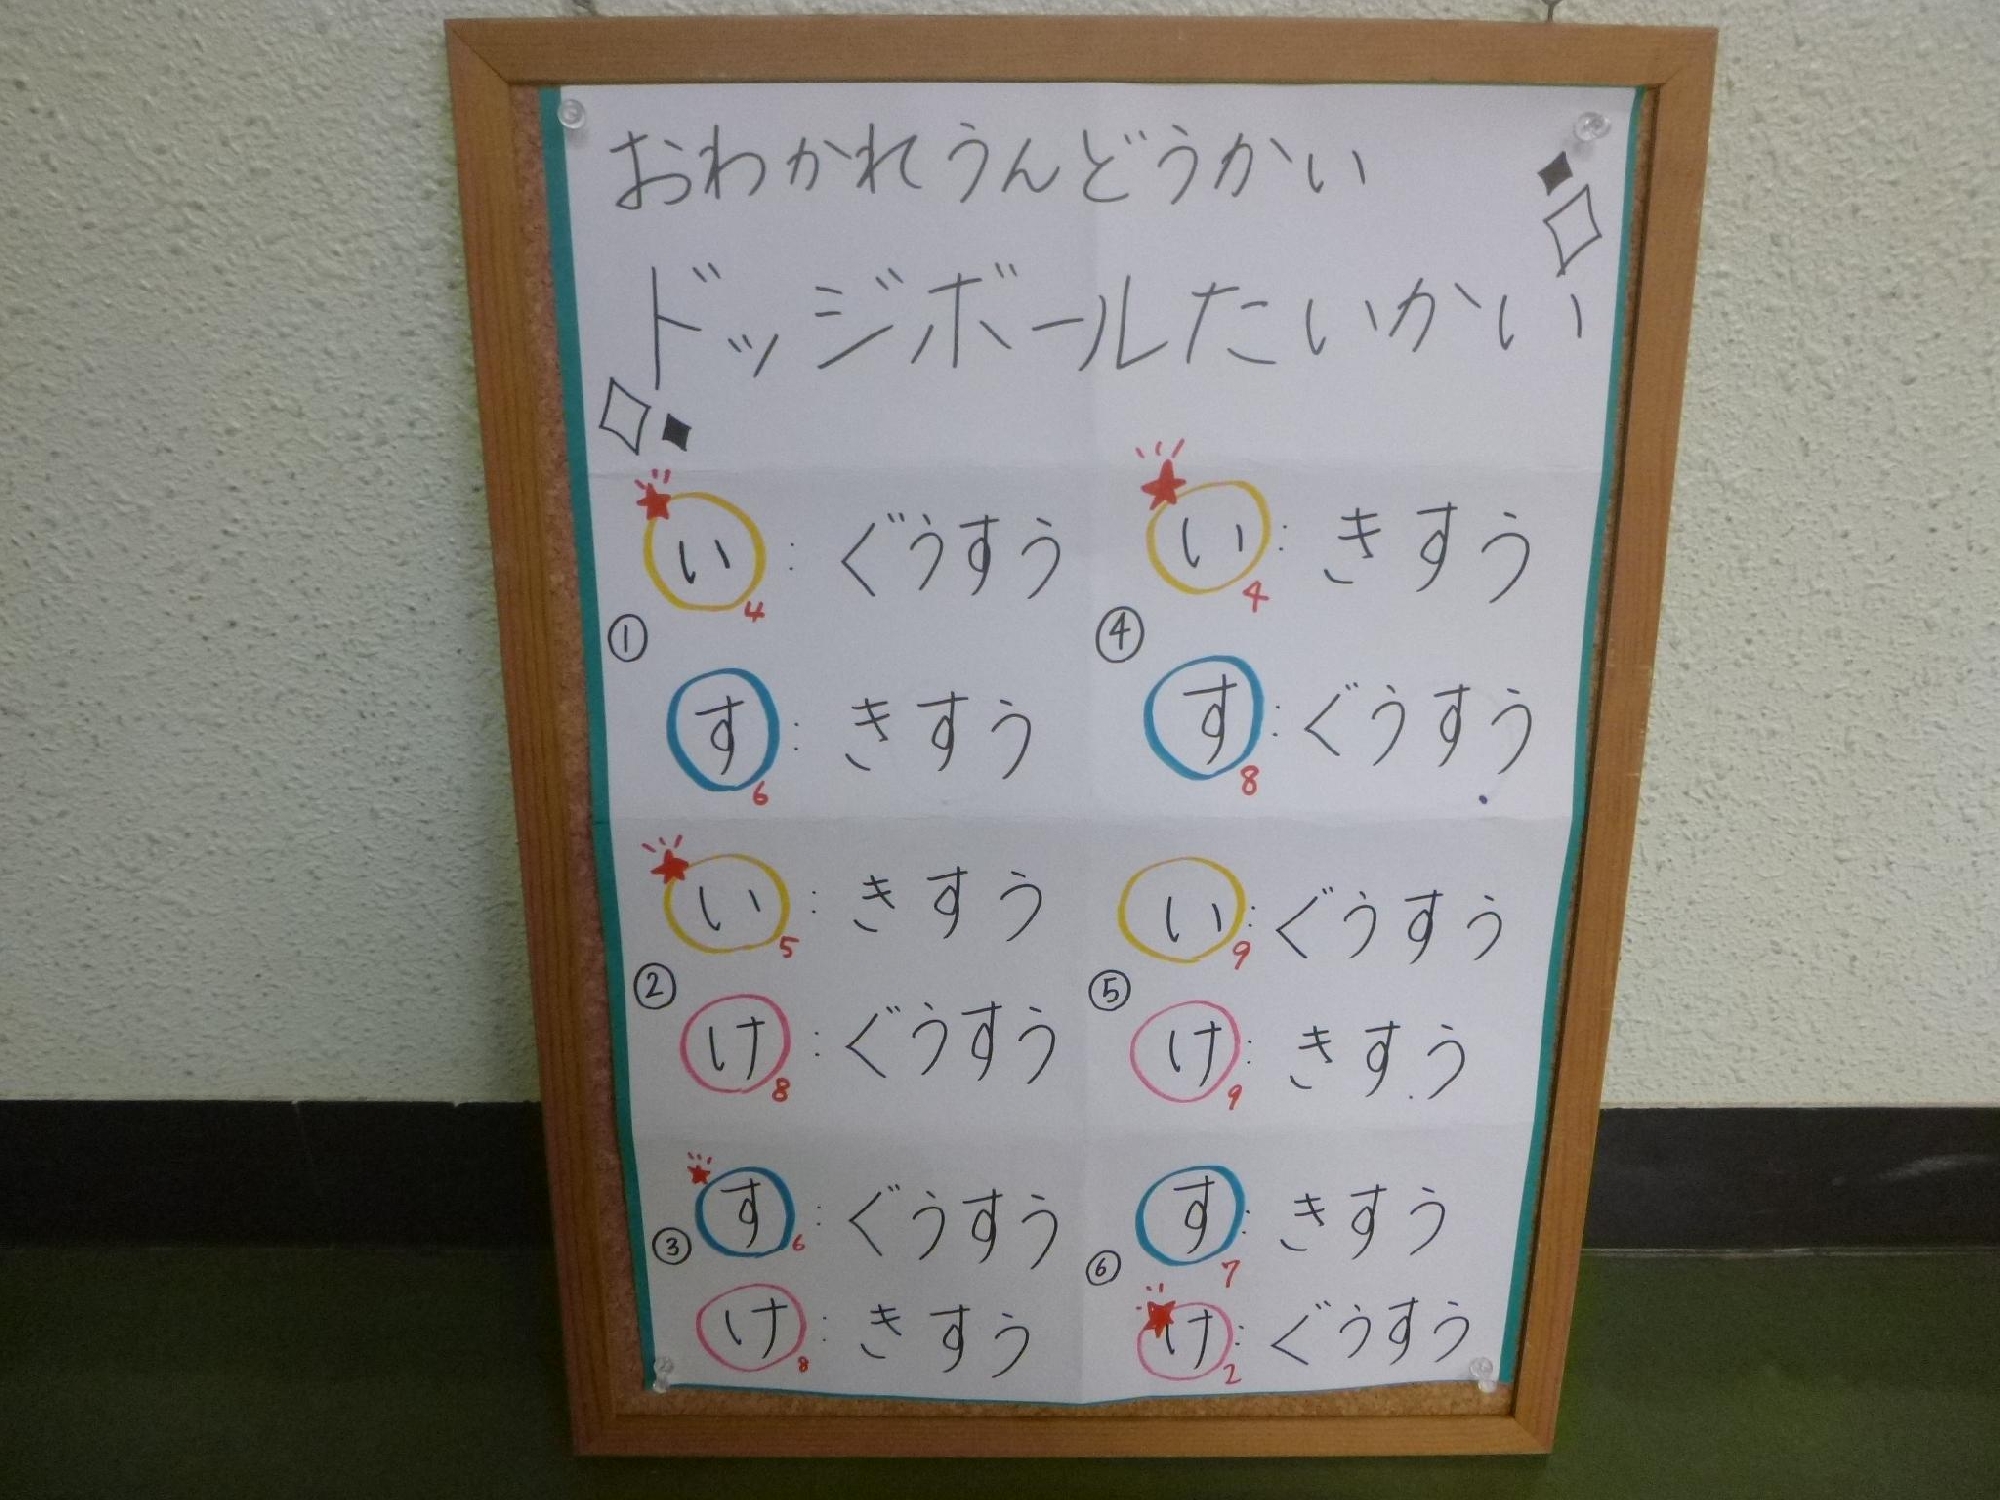 おわかれうんどうかい
ドッジボールたいかい
① い : ぐうすう 4
す : きすう 6
② い : きすう 5
け : ぐうすう 8
③ す : ぐうすう 6
け : きすう 8
④ い : きすう 4
す : ぐうすう 8
⑤ い : ぐうすう 9
け : きすう 9
⑥ す : きすう 7
け : ぐうすう 2